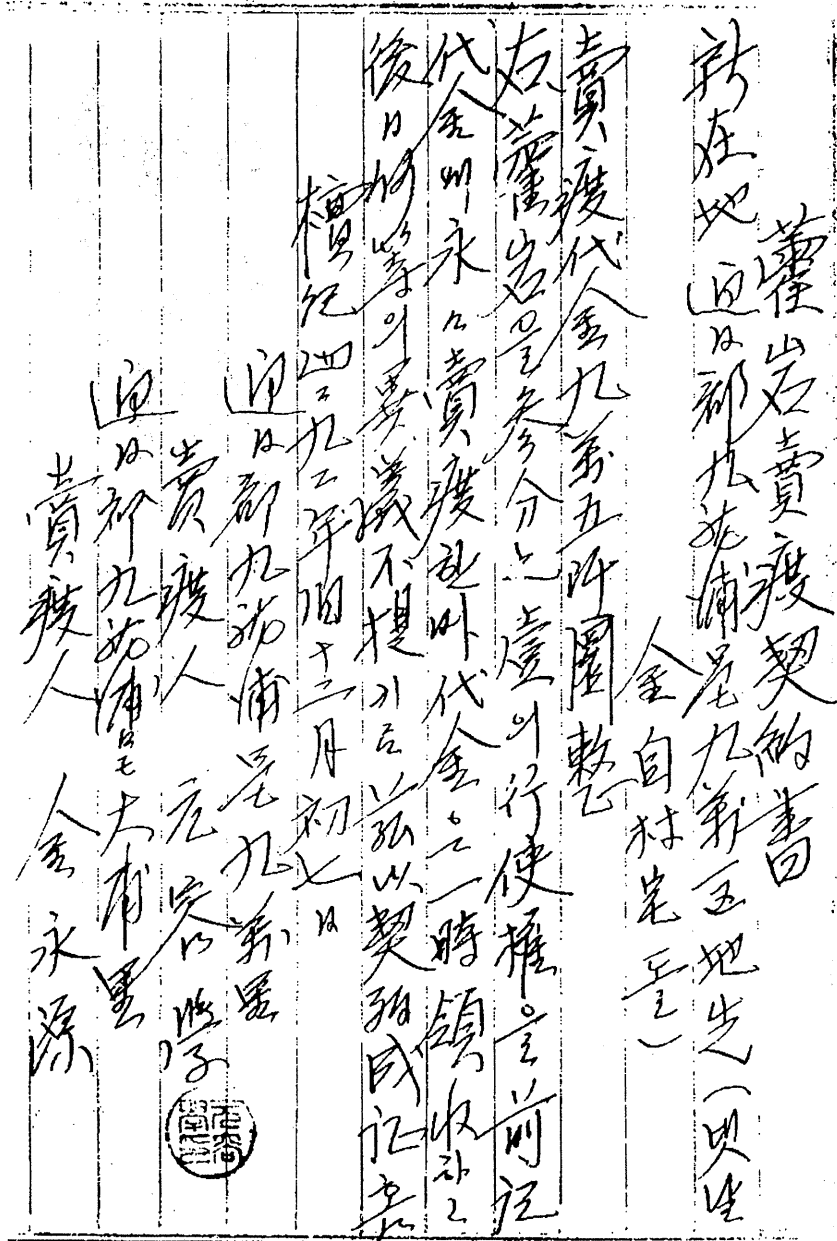 藿岩賣渡契約書
所在地 迎日郡九龍浦邑九萬一區地先(
金自村宅돌)
賣渡代金九萬五阡圜整
右藿岩을參分之壹의行使權을前記
代金에永々賣渡한바代金은一時領收하고
後日何等의異議不提기로玆以契約成証홈
檀紀四二九二年旧十二月初七日
迎日郡九龍浦邑九萬里
賣渡人 元容學
迎日郡九龍浦邑大甫里
賣渡人 金永源